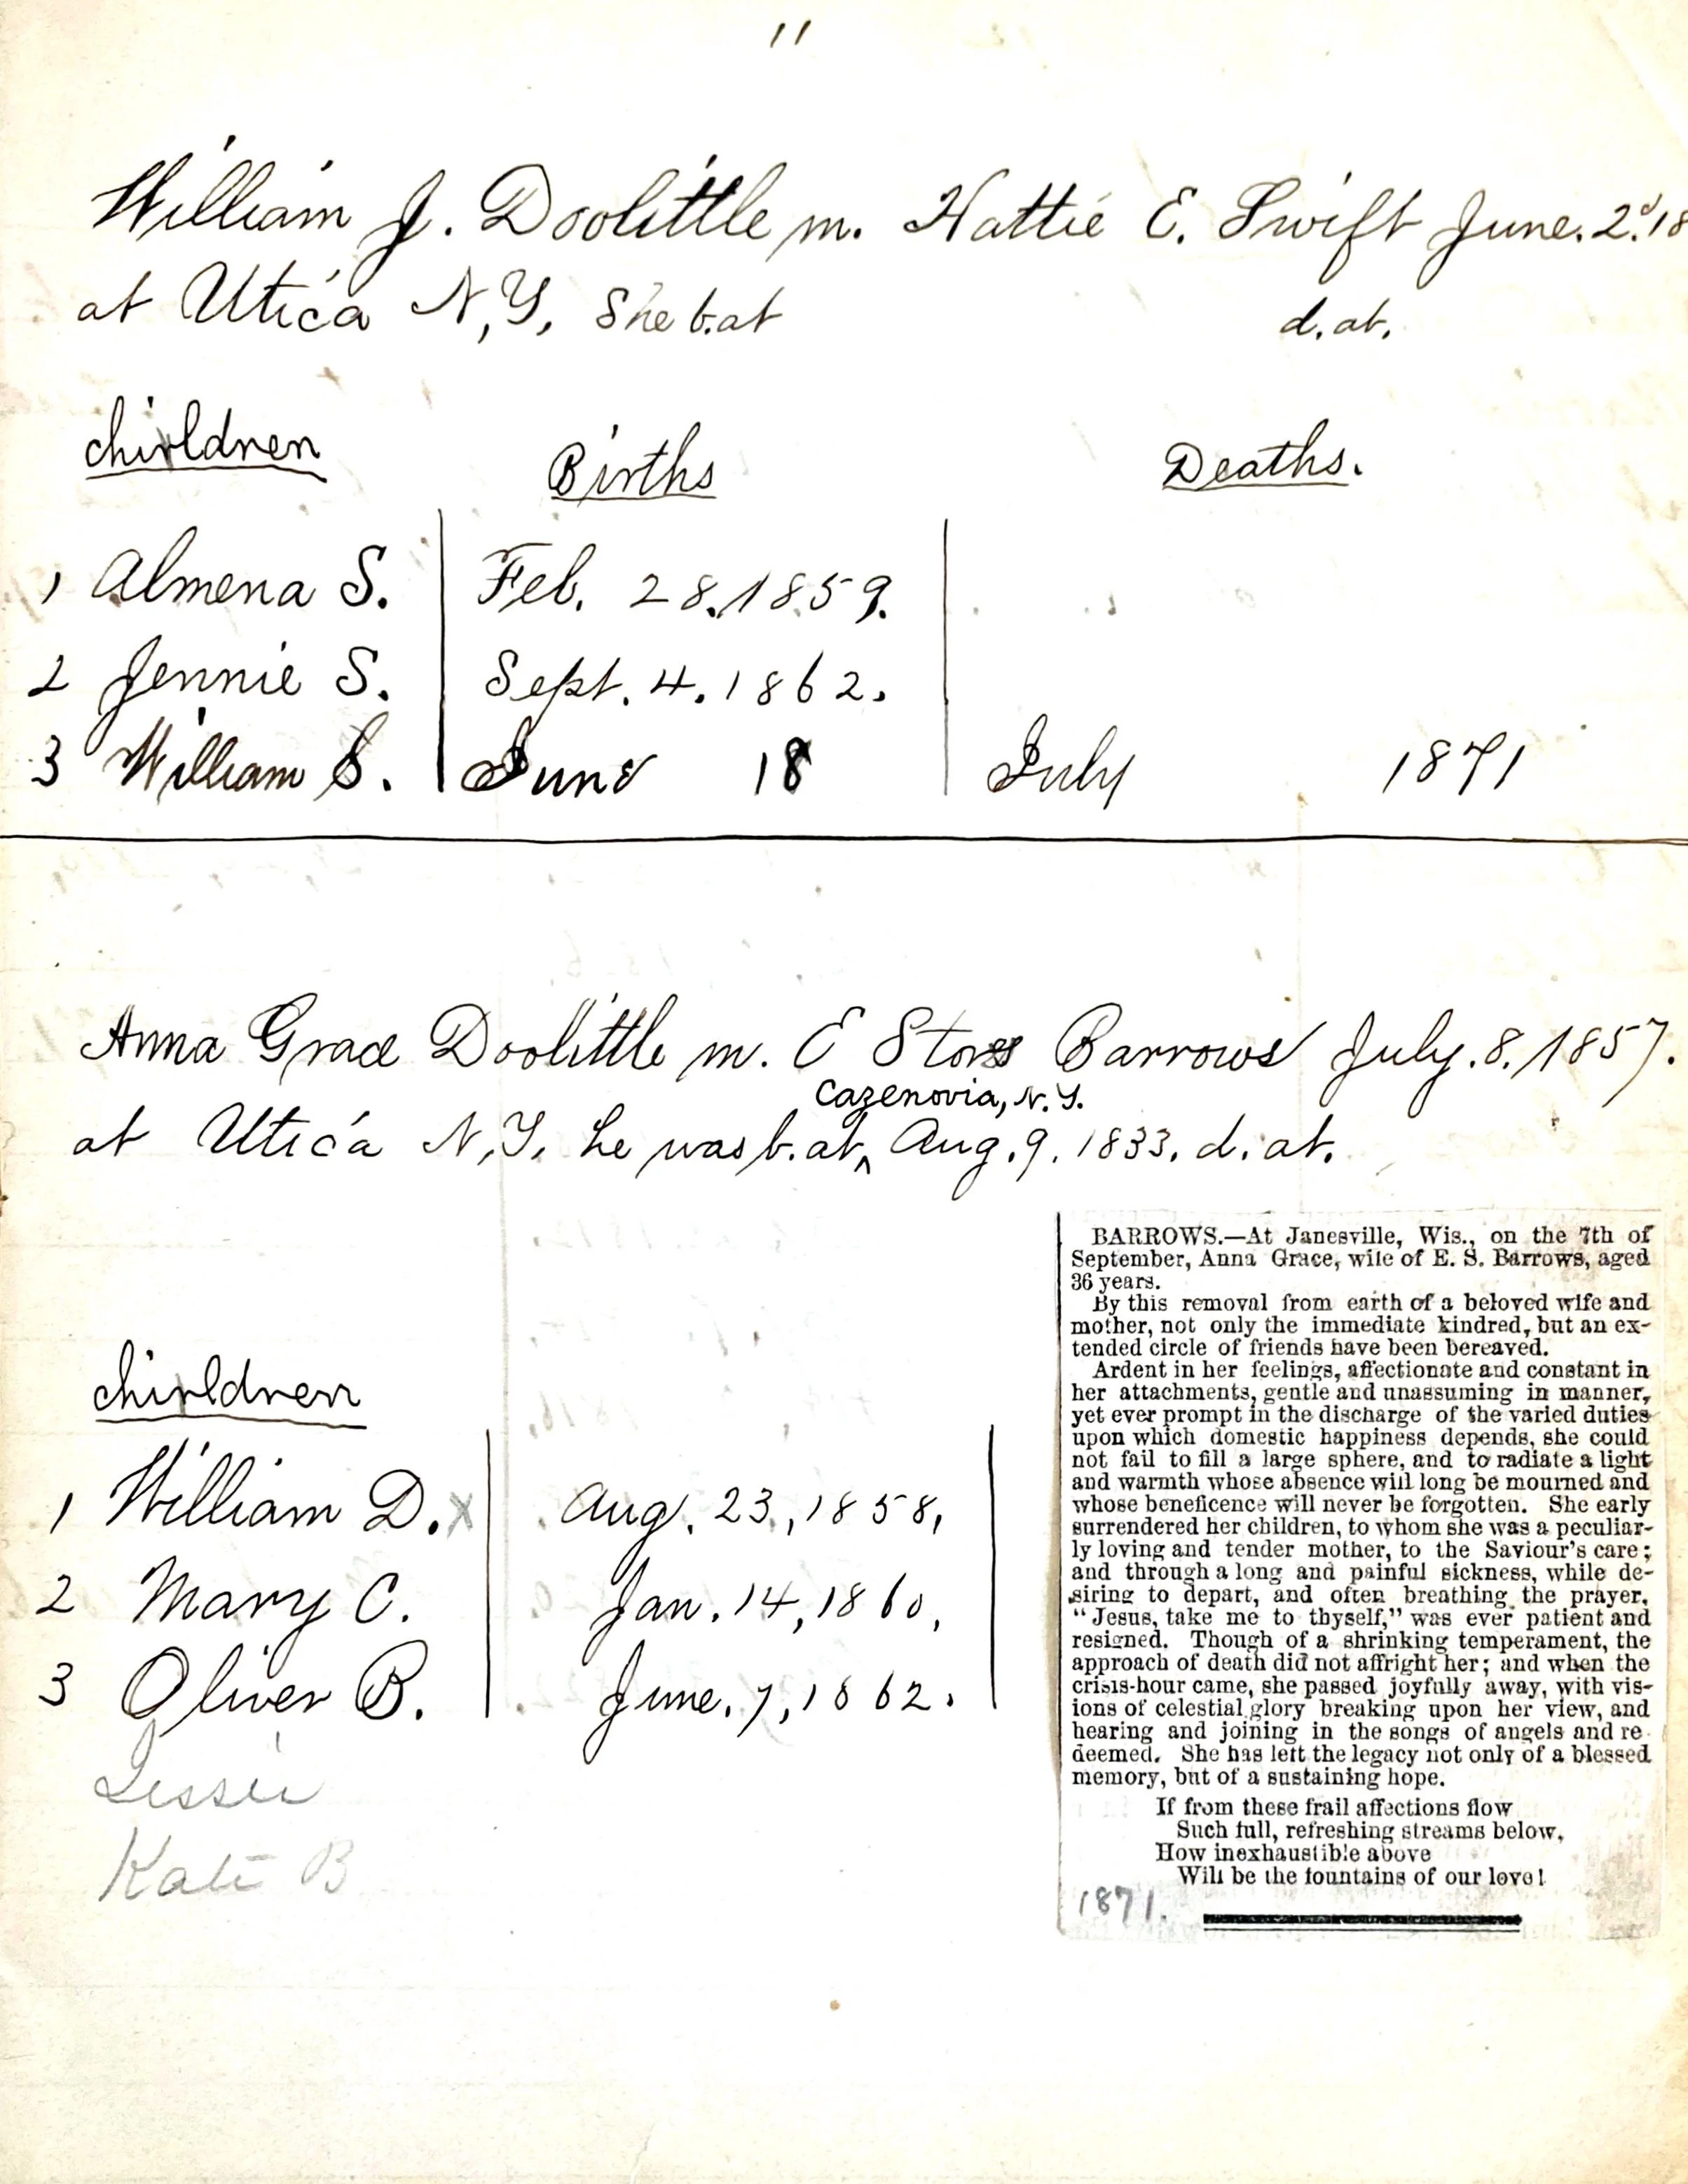 11
William J. Doolittle m. Hattie E. Swift June. 2d. 18
at Utica N,Y, She b. at d. at.
children Births Deaths.
1 Almena S. Feb. 28. 1859.
2 Jennie S. Sept. 4. 1862.
3 William S. June 18 July 1871
Anna Grace Doolittle m. E Storrs Barrows July. 8. 1857.
Cazenovia, N.Y.
at Utica N,Y, he was b. at ^ Aug. 9. 1833. d. at.
children
1 William D. x Aug. 23, 1858,
2 Mary C. Jan. 14, 1860,
3 Oliver B. June. 7, 1862.
Jessie
Kate B
BARROWS.—At Janesville, Wis., on the 7th of
September, Anna Grace, wife of E. S. Barrows, aged
36 years.
By this removal from earth of a beloved wife and
mother, not only the immediate kindred, but an ex-
tended circle of friends have been bereaved.
Ardent in her feelings, affectionate and constant in
her attachments, gentle and unassuming in manner,
yet ever prompt in the discharge of the varied duties
upon which domestic happiness depends, she could
not fail to fill a large sphere, and to radiate a light
and warmth whose absence will long be mourned and
whose beneficence will never be forgotten. She early
surrendered her children, to whom she was a peculiar-
ly loving and tender mother, to the Saviour's care;
and through a long and painful sickness, while de-
siring to depart, and often breathing the prayer,
"Jesus, take me to thyself," was ever patient and
resigned. Though of a shrinking temperament, the
approach of death did not affright her; and when the
crisis-hour came, she passed joyfully away, with vis-
ions of celestial glory breaking upon her view, and
hearing and joining in the songs of angels and re-
deemed. She has left the legacy not only of a blessed
memory, but of a sustaining hope.
If from these frail affections flow
Such full, refreshing streams below,
How inexhaustible above
Will be the fountains of our love!
1871.